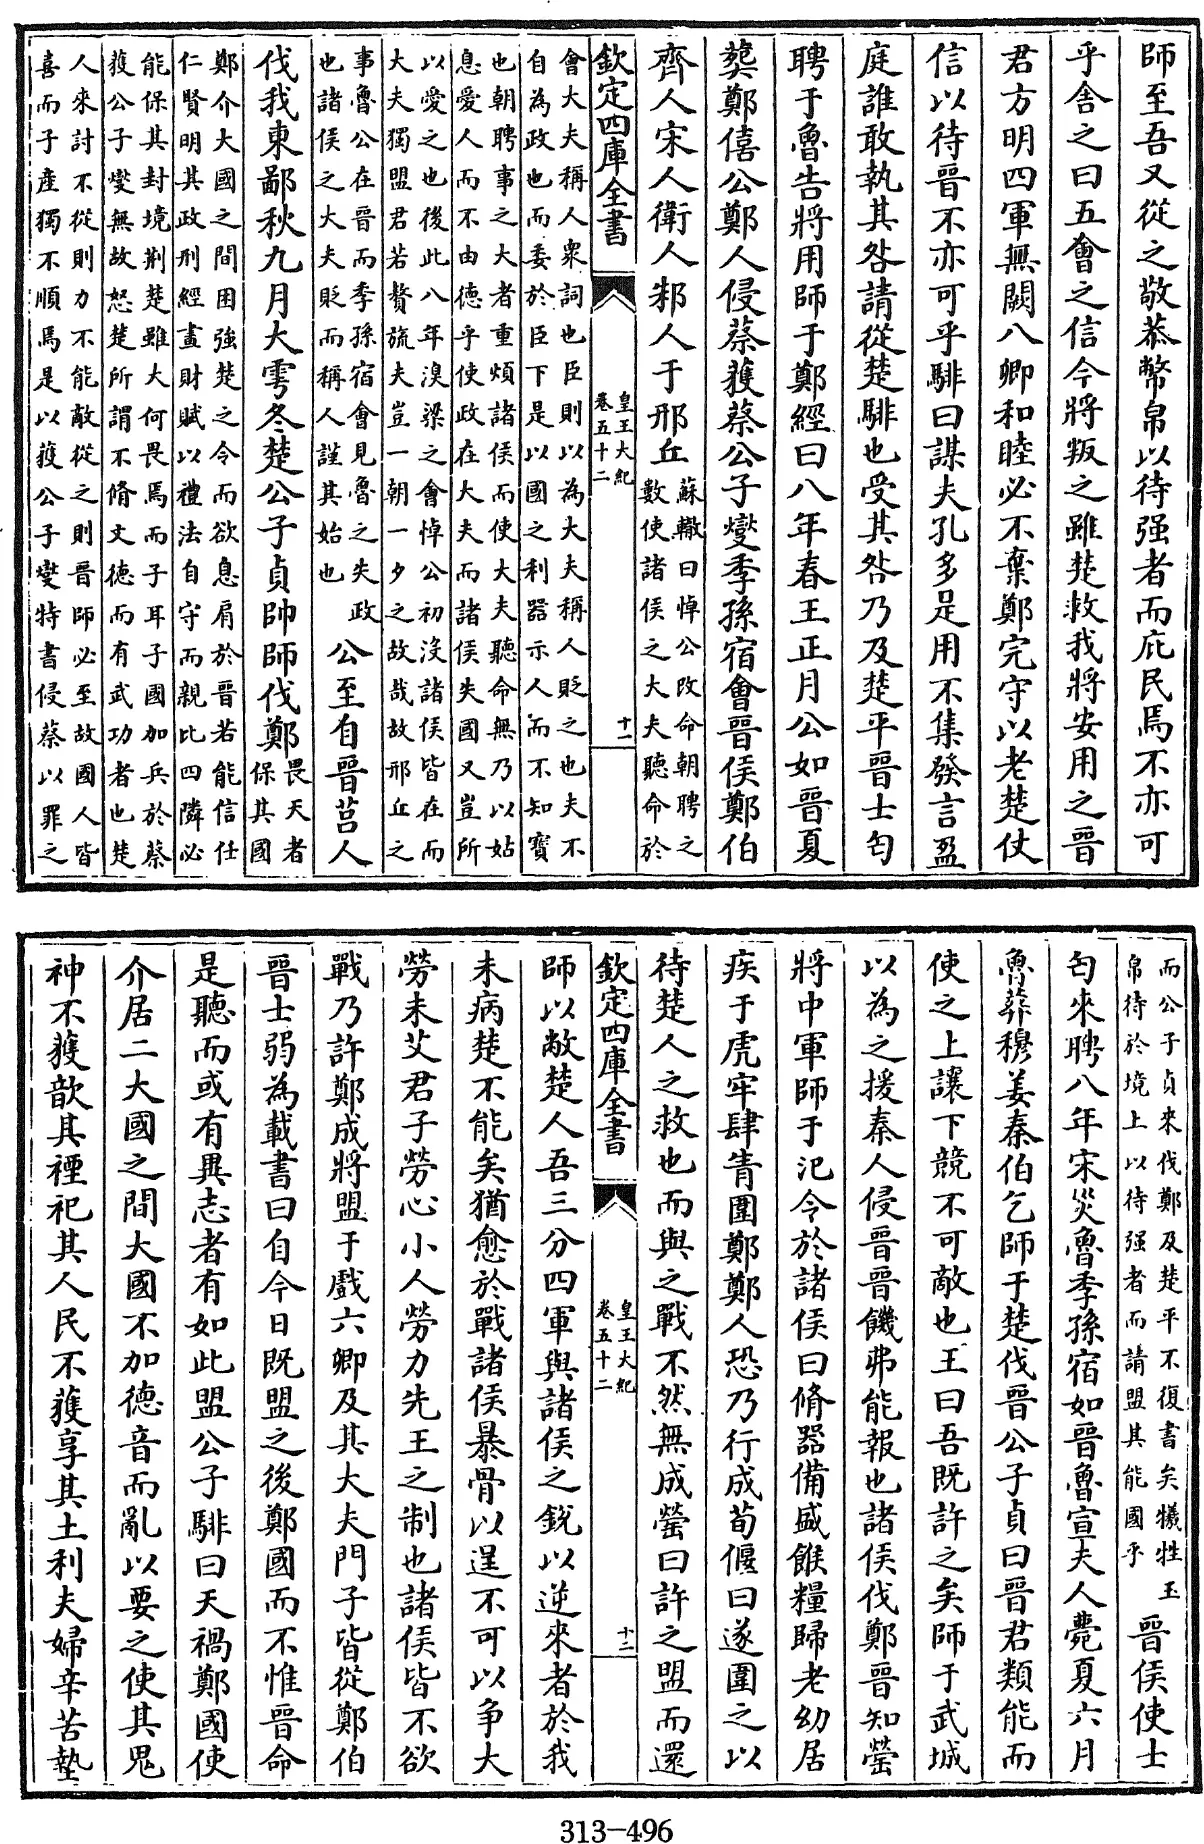 師至吾又從之敬恭幣帛以待强者而庇民焉不亦可
乎舍之曰五會之信今將叛之雖楚救我將安用之晉
君方明四軍無闕八卿和睦必不棄鄭完守以老楚仗
信以待晉不亦可乎騑曰謀夫孔多是用不集發言盈
庭誰敢執其咎請從楚騑也受其咎乃及楚平晉士匄
聘于魯告將用師于鄭經曰八年春王正月公如晉夏
葬鄭僖公鄭人侵蔡獲蔡公子燮季孫宿會晉侯鄭伯
齊人宋人衛人邾人于邢丘
蘇轍曰悼公改命朝聘之
數使諸侯之大夫聽命於
欽定四庫全書
皇王大紀
卷五十二
十一
會大夫稱人衆詞也臣則以為大夫稱人貶之也夫不
自為政也而委於臣下是以國之利器示人而不知寶
也朝聘事之大者重煩諸侯而使大夫聽命無乃以姑
息愛人而不由德乎使政在大夫而諸侯失國又豈所
以愛之也後此八年溴梁之會悼公初沒諸侯皆在而
大夫獨盟君若贅旒夫豈一朝一夕之故哉故邢丘之
事魯公在晉而季孫宿會見魯之失政
也諸侯之大夫貶而稱人謹其始也
公至自晉莒人
伐我東鄙秋九月大雩冬楚公子貞帥師伐鄭
畏天者
保其國
鄭介大國之間困強楚之令而欲息肩於晉若能信任
仁賢明其政刑經畫財賦以禮法自守而親比四隣必
能保其封境荆楚雖大何畏焉而子耳子國加兵於蔡
獲公子燮無故怒楚所謂不脩文德而有武功者也楚
人來討不從則力不能敵從之則晉師必至故國人皆
喜而子產獨不順焉是以獲公子燮特書侵蔡以罪之
而公子貞來伐鄭及楚平不復書矣犧牲玉
帛待於境上以待强者而請盟其能國乎
晉侯使士
匄來聘八年宋災魯季孫宿如晉魯宣夫人薨夏六月
魯葬穆姜秦伯乞師于楚伐晉公子貞曰晉君類能而
使之上讓下競不可敵也王曰吾既許之矣師于武城
以為之援秦人侵晉晉饑弗能報也諸侯伐鄭晉知罃
將中軍師于氾令於諸侯曰脩器備盛餱糧歸老幼居
疾于虎牢肆眚圍鄭鄭人恐乃行成荀偃曰遂圍之以
待楚人之救也而與之戰不然無成罃曰許之盟而還
欽定四庫全書
皇王大紀
卷五十二
十二
師以敝楚人吾三分四軍與諸侯之銳以逆來者於我
未病楚不能矣猶愈於戰諸侯暴骨以逞不可以争大
勞未艾君子勞心小人勞力先王之制也諸侯皆不欲
戰乃許鄭成將盟于戲六卿及其大夫門子皆從鄭伯
晉士弱為載書曰自今日既盟之後鄭國而不惟晉命
是聽而或有異志者有如此盟公子騑曰天禍鄭國使
介居二大國之間大國不加德音而亂以要之使其鬼
神不獲歆其禋祀其人民不獲享其土利夫婦辛苦墊
313-496